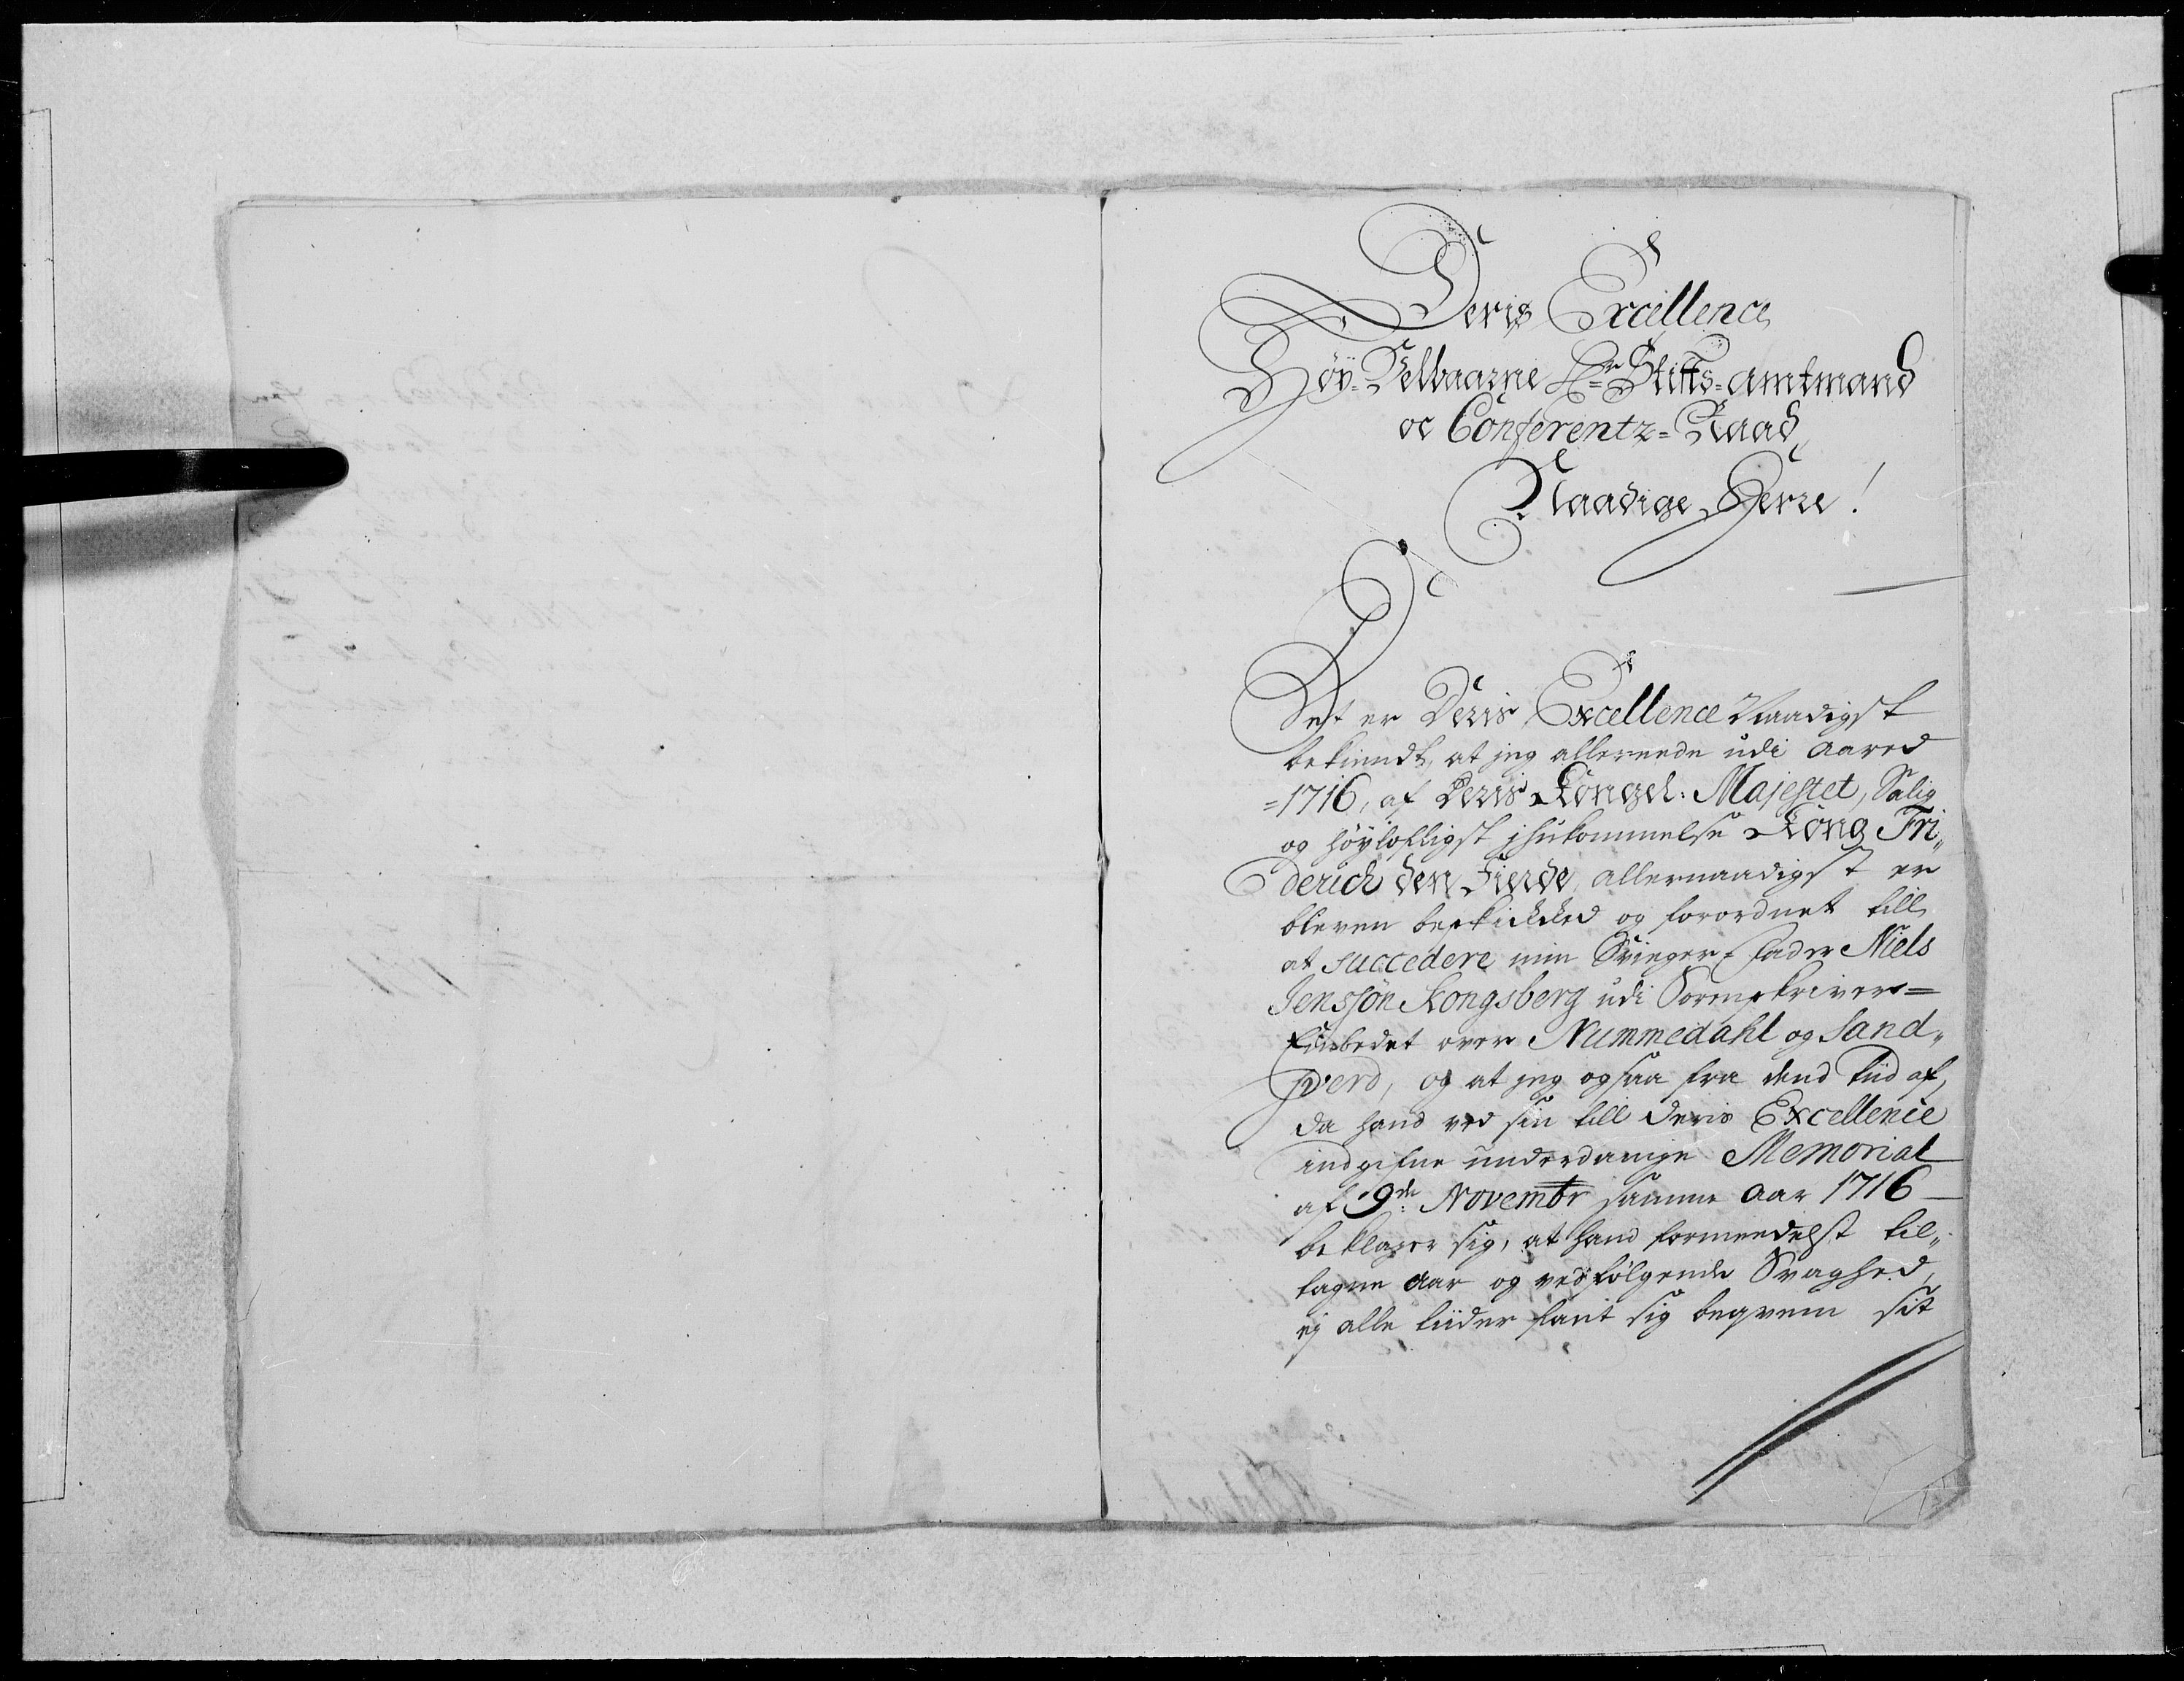 Deris Excellence
Höÿ-Velbaarne Hr Stifts-amtmand
oc Conferentz-Raad,
Naadige Herre!
Det er Deris Excellence Naadigst
bekiendt, at jeg allereede udi Aared
=1716, af Deris Kongel: Majestet, Salig
og höÿlofligst ihukommelse Kong Fri„
derich den Fierde, allernaadigst er
bleven beskikked og forordnet till
at succedere min Svieger-fader Niels
Jensön Kongsberg udi Sorenskriver=
Embedet over Nummedahl og Sand„
sverd, og at jeg ogsaa fra dend tiid af,
da hand ved sin till Deris Excellence
indgifne underdanige Memorial
af 9de Novembr samme Aar 1716
beklager sig, at hand formeedelst til„
tagne Aar og vedfølgende Svaghed,
ej alle tiider fant sig beqvem sit